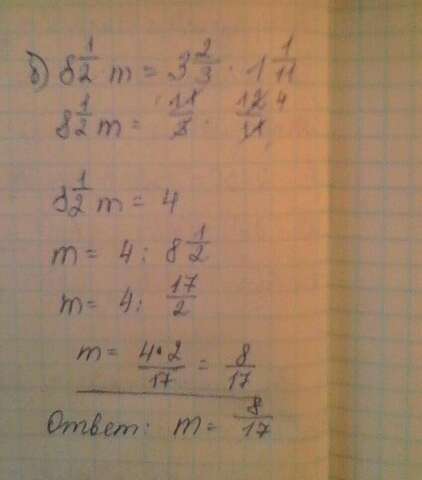 б) 8 1/2 m = 3 2/3 · 1 1/11
8 1/2 m = 11/3 · 12/11 4
8 1/2 m = 4
m = 4 : 8 1/2
m = 4 : 17/2
m = 4·2/17 = 8/17
Ответ: m = 8/17